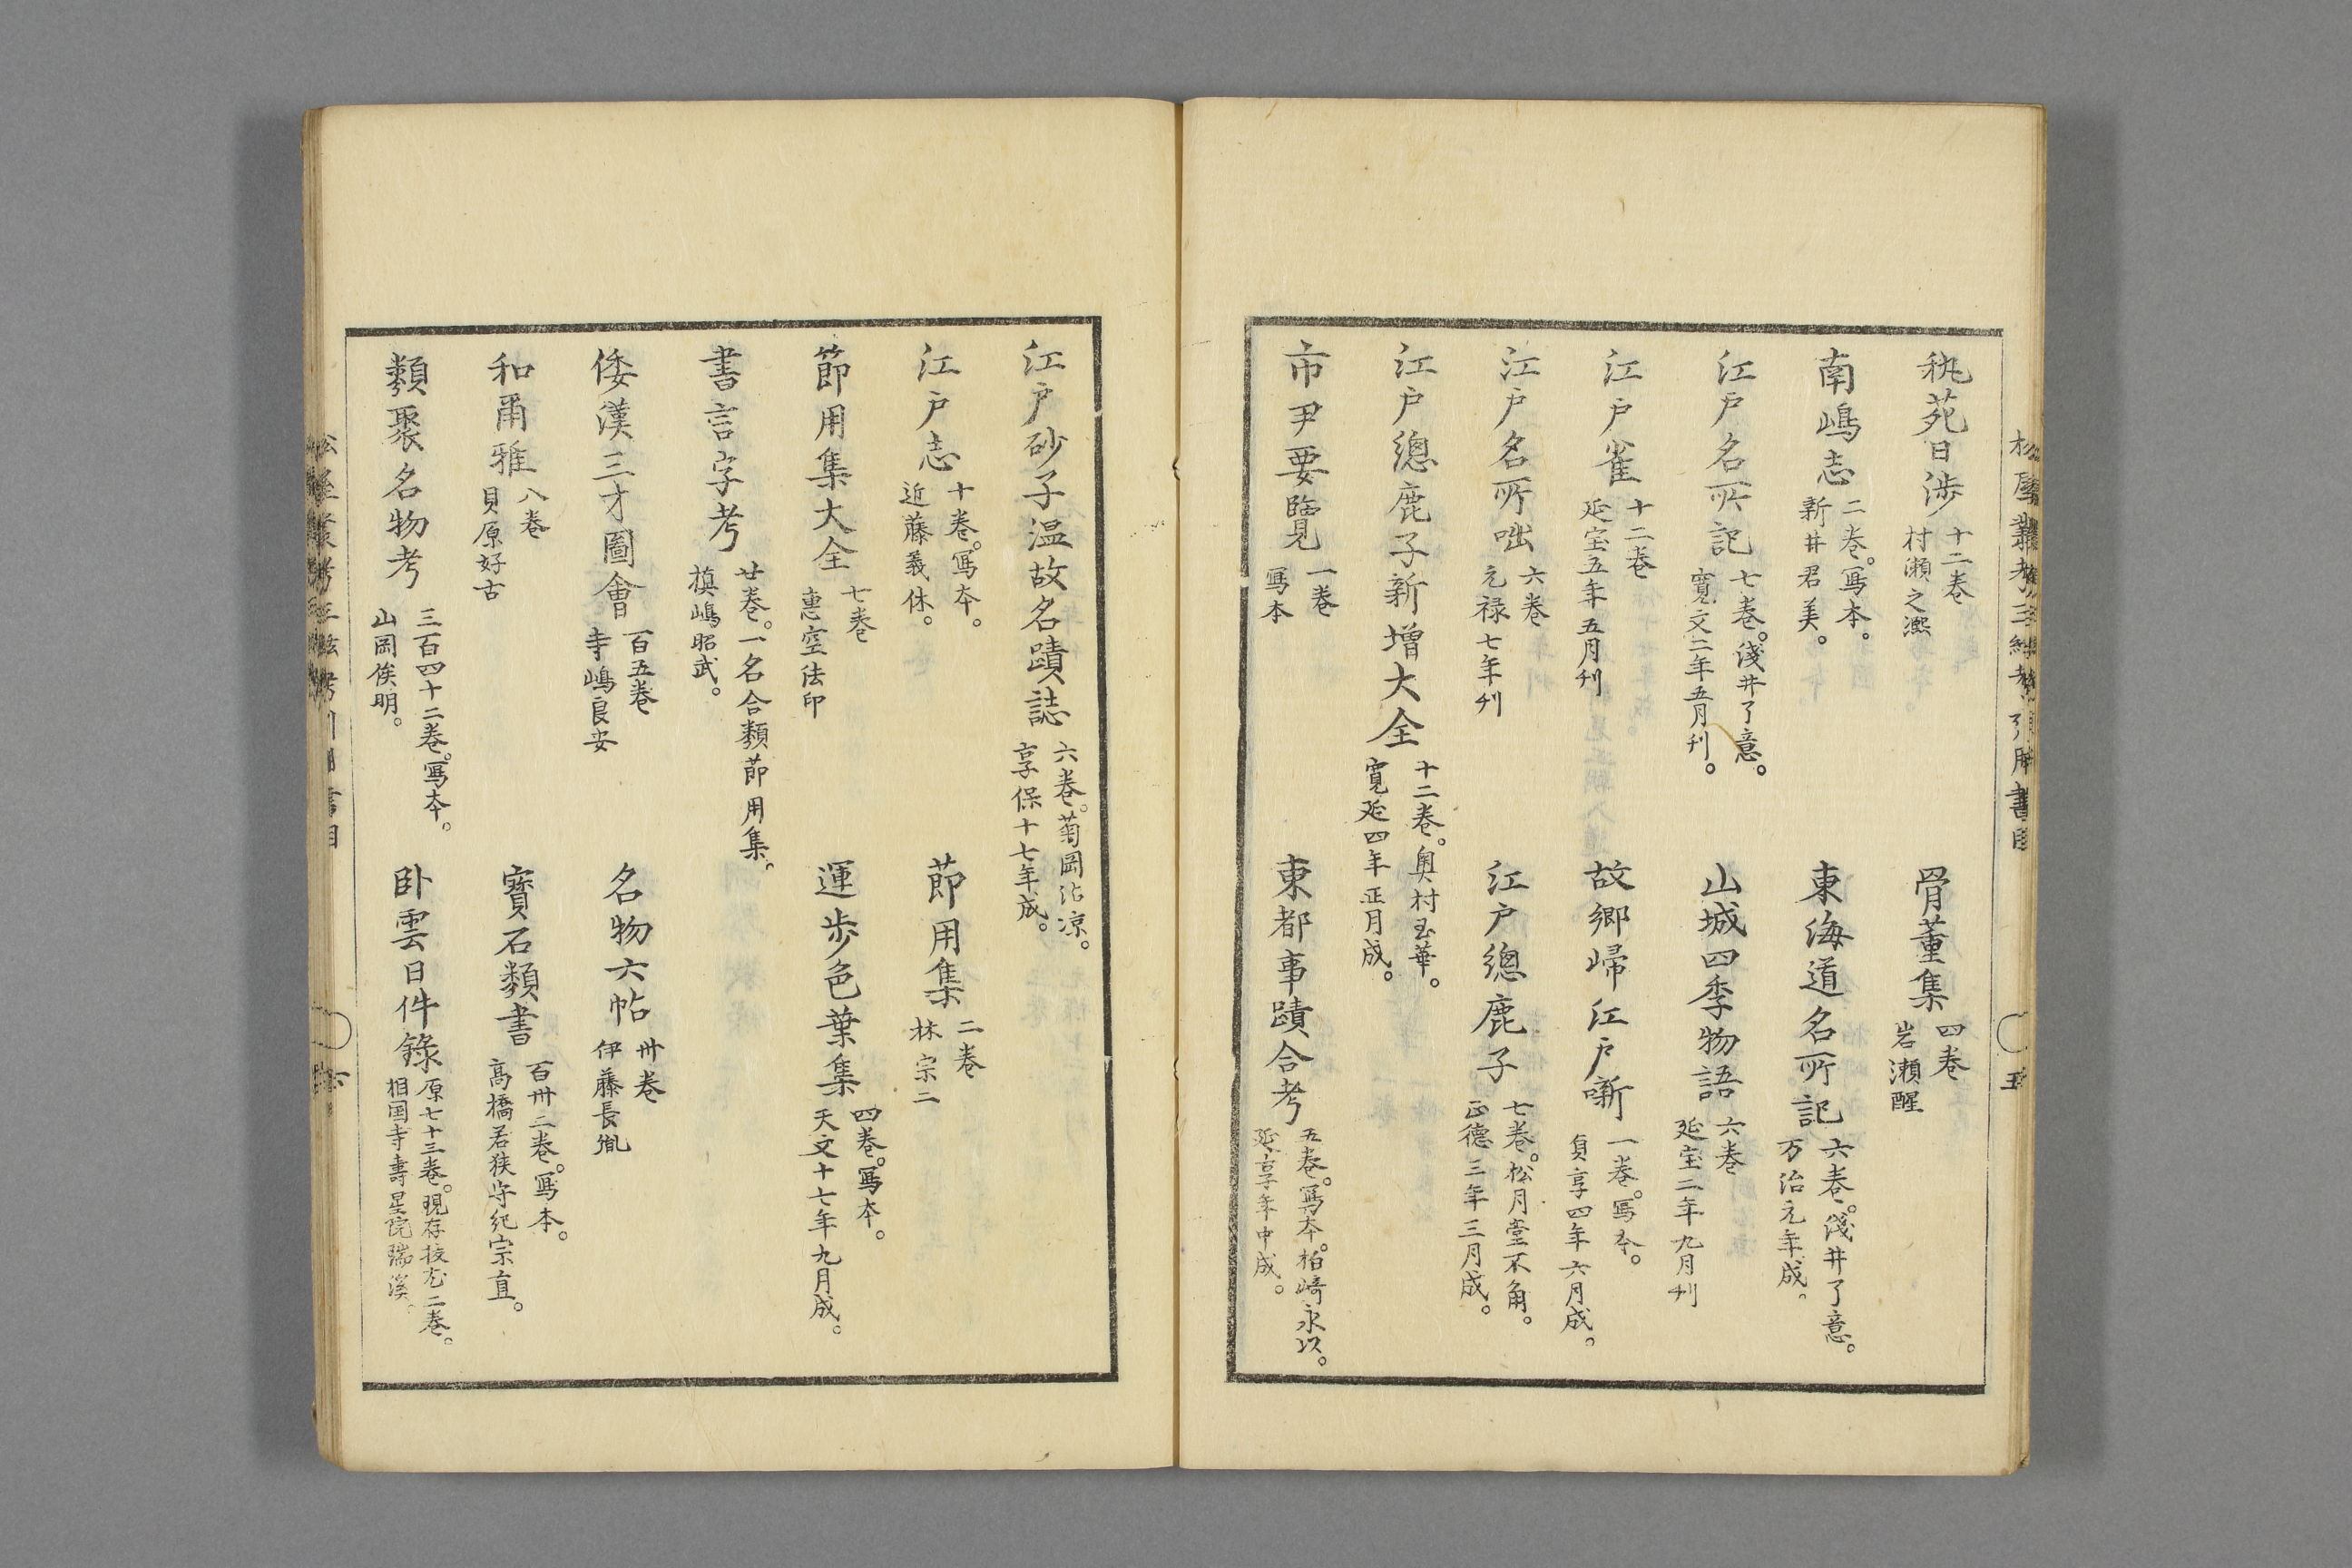 秇苑日渉 十二巻 村瀬之凞
骨董集 四巻 岩瀬醒
南嶋志 二巻。写本。 新井君美。
東海道名所記 六巻。浅井了意。 万治元年成。
江戸名所記 七巻。浅井了意。 寛文二年五月刊。
山城四季物語 六巻 延宝二年九月刊
江戸雀 十二巻 延宝五年五月刊
故郷帰江戸噺 一巻。写本。 貞享四年六月成。
江戸名所咄 六巻 元禄七年刊
江戸總鹿子 七巻。松月堂不角。 正徳三年三月成。
江戸總鹿子新増大全 十二巻。奥村玉華。 寛延四年正月成。
市尹要覧 一巻 写本
東都事蹟合考 五巻。写本。柏崎永以。 延享年中成。
江戸砂子温故名蹟誌 六巻。菊岡沾凉。 享保十七年成。
江戸志 十巻。写本。 近藤義休。
節用集 二巻 林宗二
節用集大全 七巻 恵空法印
運歩色葉集 四巻。写本。 天文十七年九月成。
書言字考 廿巻。一名合類節用集。 槙嶋昭武。
倭漢三才圖會 百五巻 寺嶋良安
名物六帖 卅巻 伊藤長胤
和爾雅 八巻 貝原好古
寳石類書 百卅二巻。写本。 高橋若狭守紀宗直。
類聚名物考 三百四十二巻。写本。 山岡俊明。
卧雲日件録 原七十三巻。現存抜尤二巻。 相国寺壽星院瑞溪。